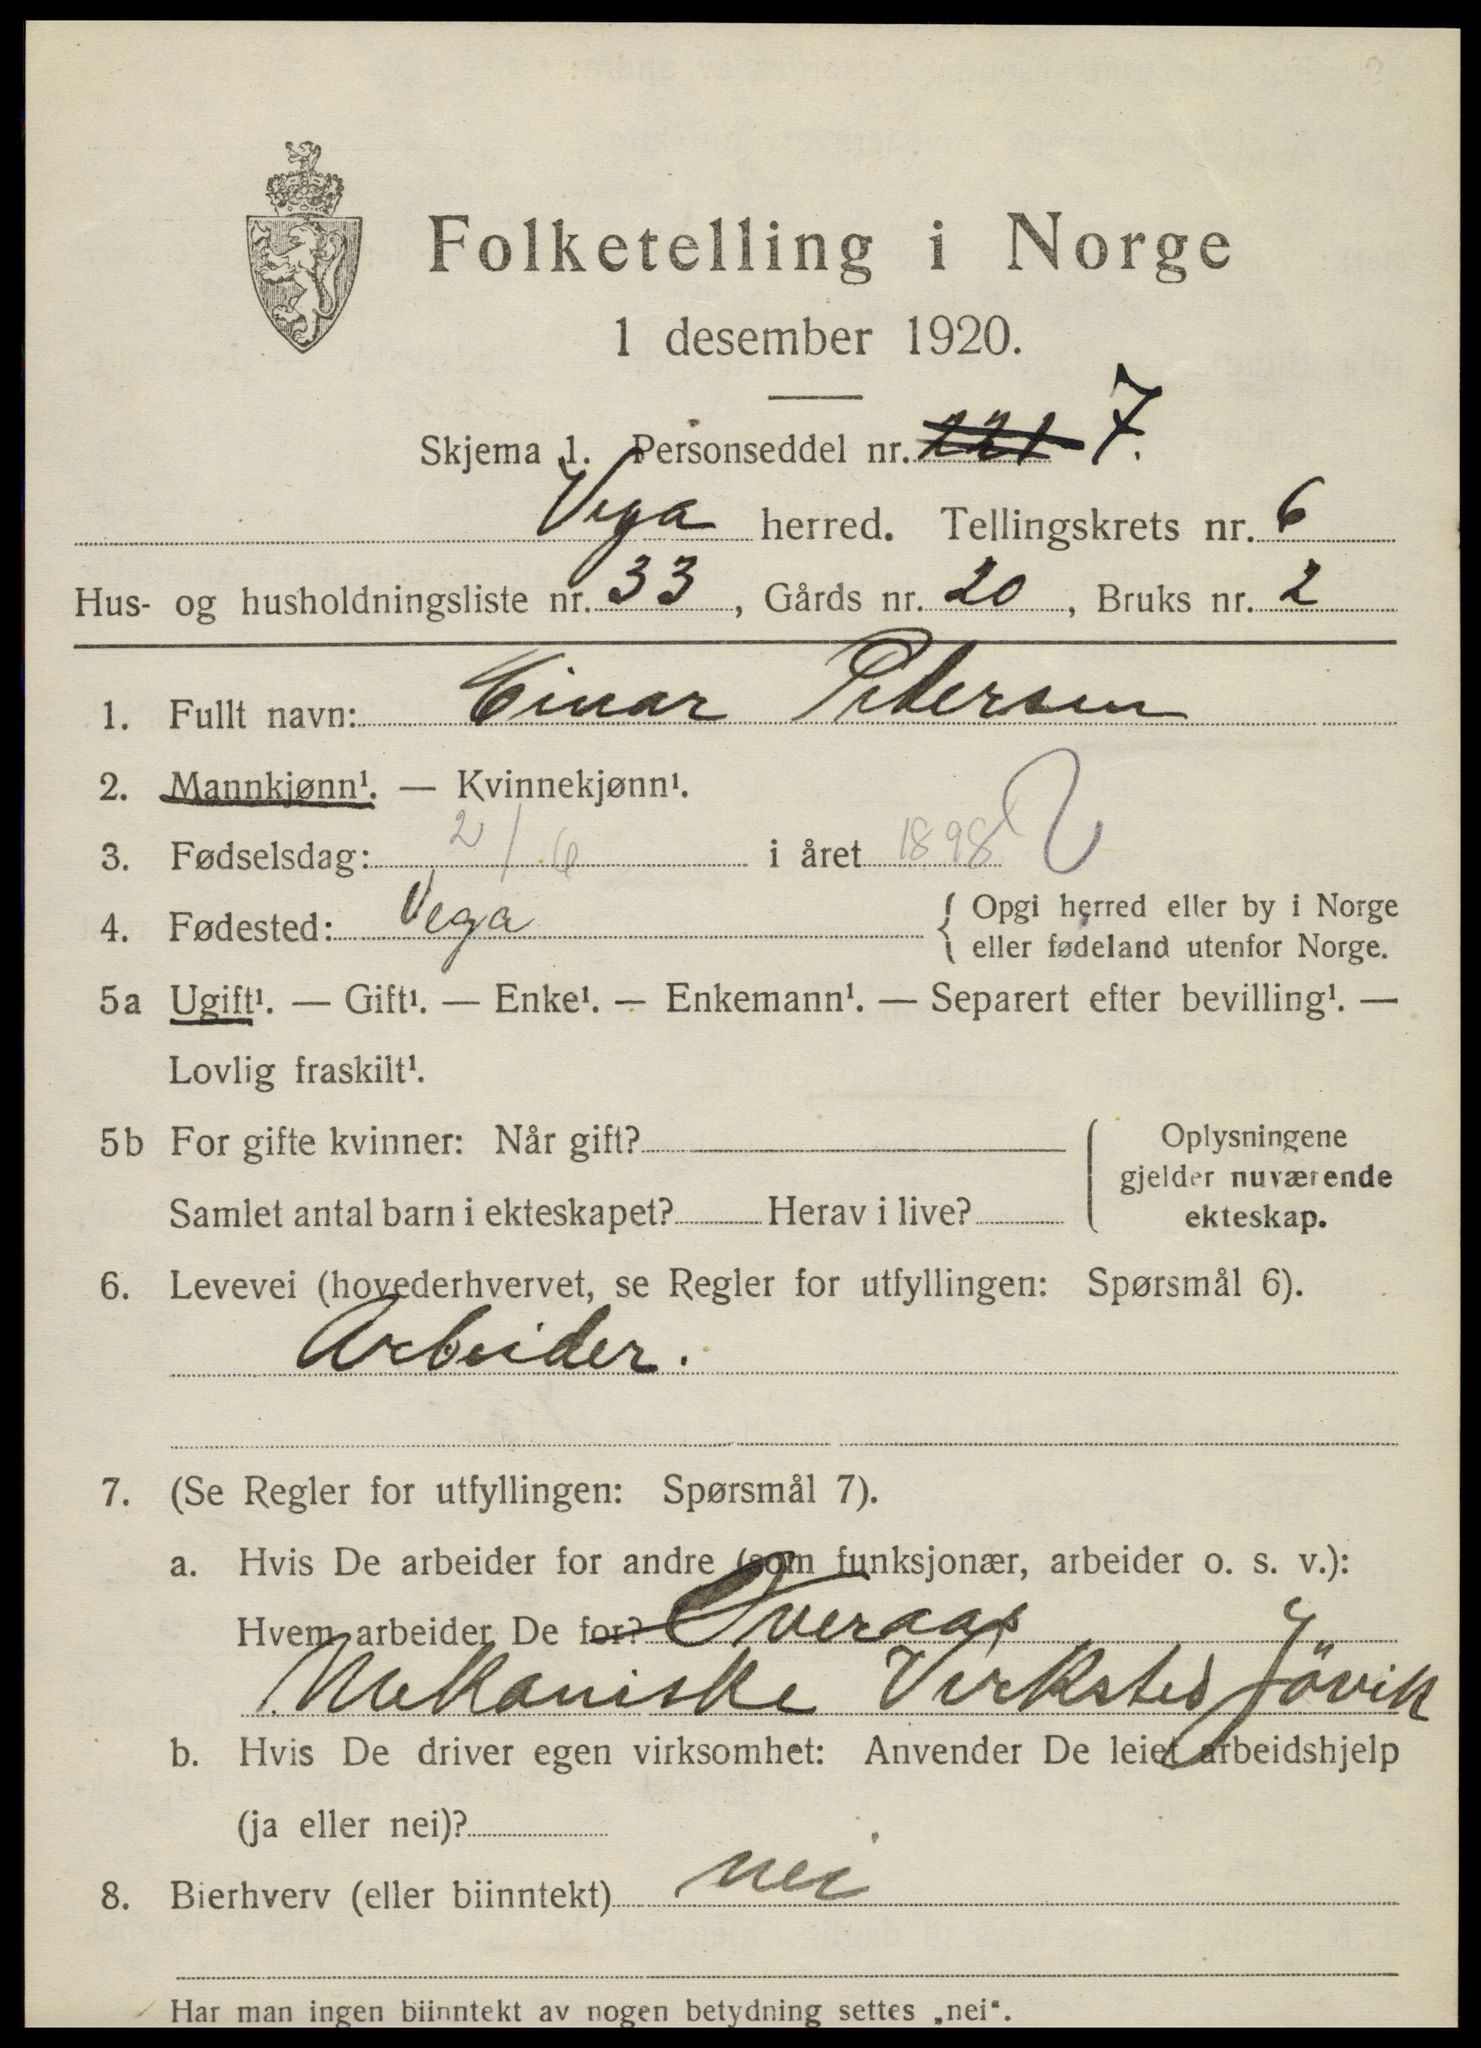 Folketelling i Norge
1 desember 1920.
Skjema 1. Personseddel nr. 121 7.
Vega herred. Tellingskrets nr. 6
Hus- og husholdningsliste nr. 33, Gårds nr. 20, Bruks nr. 2
1. Fullt navn: Einar Petersen
2. Mannkjønn¹. — Kvinnekjønn¹.
3. Fødselsdag: 2/6 i året 1898
4. Fødested: Vega { Opgi herred eller by i Norge
eller fødeland utenfor Norge.
5a Ugift¹. — Gift¹. — Enke¹. — Enkemann¹. — Separert efter bevilling¹. —
Lovlig fraskilt¹.
5b For gifte kvinner: Når gift? { Oplysningene
gjelder nuværende
Samlet antal barn i ekteskapet? Herav i live? ekteskap.
6. Levevei (hovederhvervet, se Regler for utfyllingen: Spørsmål 6).
Arbeider.
7. (Se Regler for utfyllingen: Spørsmål 7).
a. Hvis De arbeider for andre (som funksjonær, arbeider o. s. v.):
Hvem arbeider De for? Tveraas
Mekaniske Verksted Jövik
b. Hvis De driver egen virksomhet: Anvender De leiet arbeidshjelp
(ja eller nei)?
8. Bierhverv (eller biinntekt) nei
Har man ingen biinntekt av nogen betydning settes „nei“.